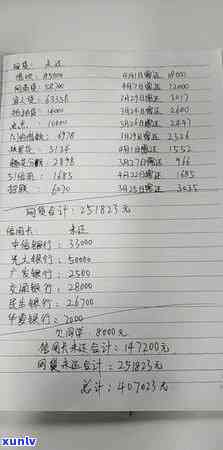 网贷: 未还
借呗: 85000 4月1日需还 18000
网商贷: 58700 4月7日需还 12000
63358 1月29日需还 3017
34000 3月24日需还 2600
16000 3月26日需还 2447
4978 1月29日需还 2526
3134 4月1日需还 1552
2898 3月27日需还 966
51信用: 1685 4月22日需还 1685
6070 3月25日需还 3035
网贷合计: 251823元
信用卡: 未还
中信银行: 33000
光大银行: 50000
广发银行: 2500
交通银行: 28000
民生银行: 26700
华夏银行: 7000
8000元
信用卡未还合计: 147200元
网贷未还合计: 251823元
总计: 407023元
xunlv